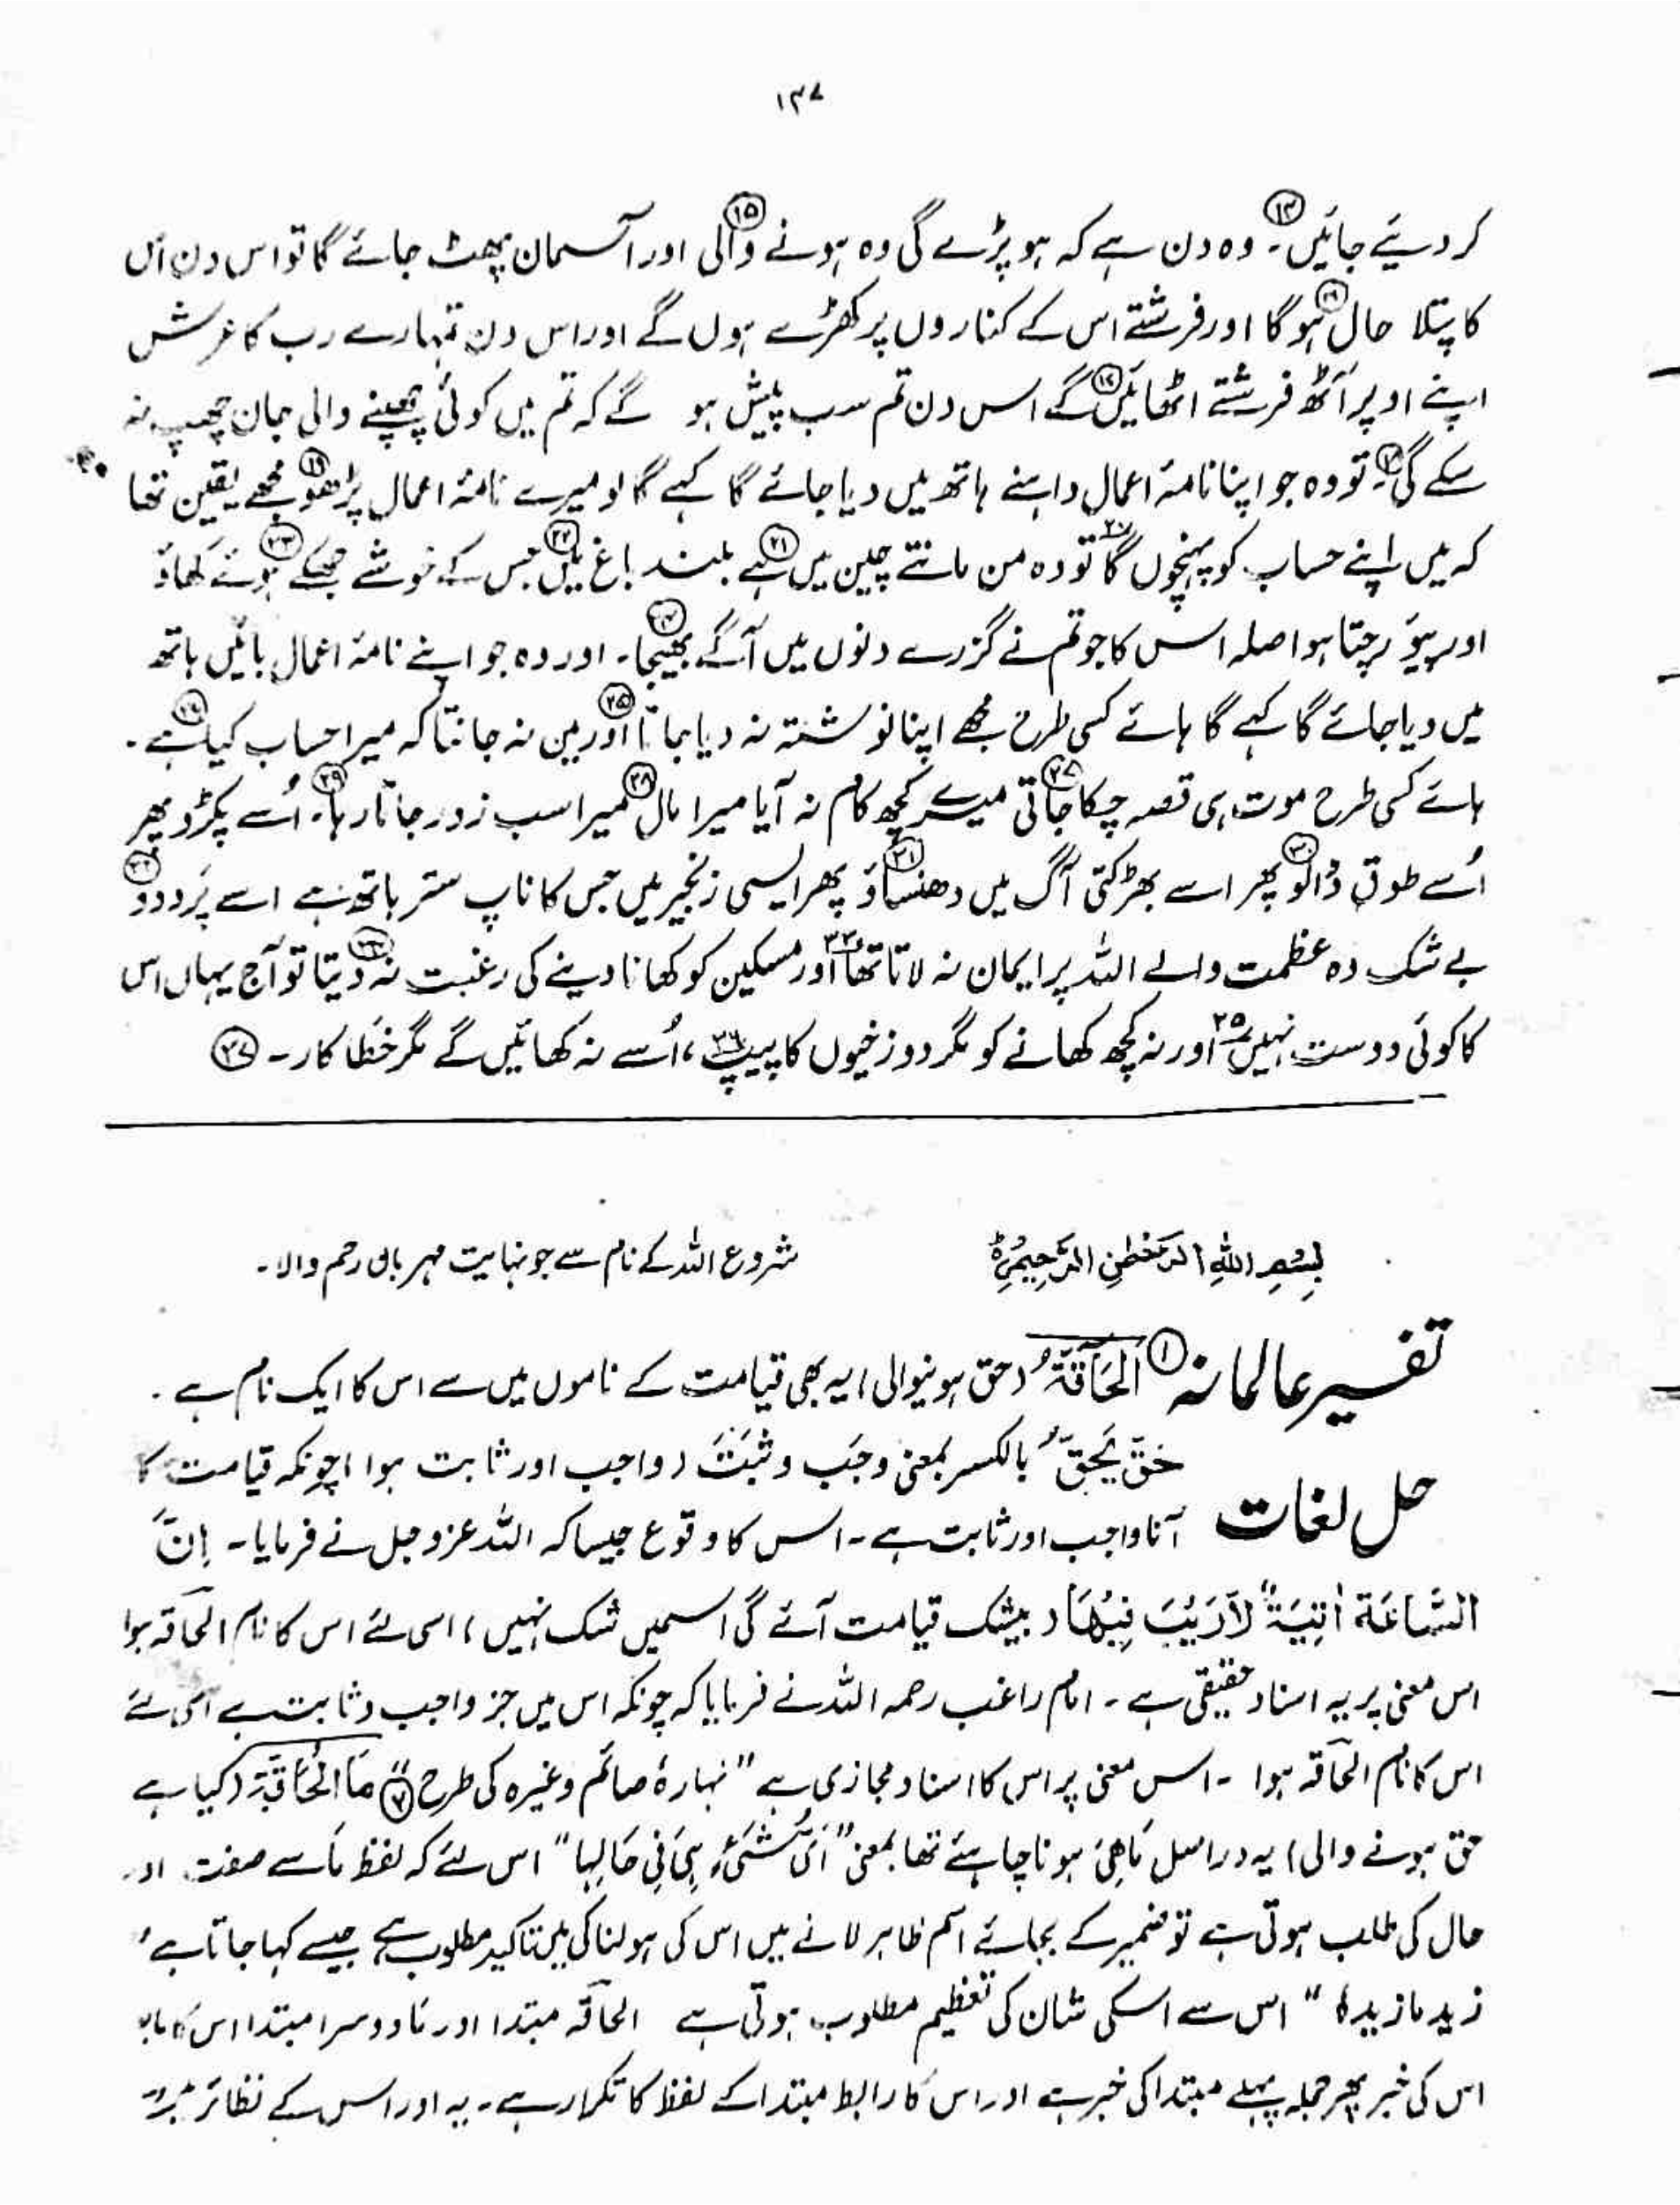 ۱۳۷
کر دیئے جائیں ۔ ⑭ وہ دن ہے کہ ہو پڑے گی وہ ہونے والی ⑮ اور آسمان پھٹ جائے گا تو اس دن اس
کا پتلا حال ہوگا ⑯ اور فرشتے اس کے کناروں پر کھڑے ہوں گے اور اس دن تمہارے رب کا عرش
اپنے اوپر آٹھ فرشتے اٹھائیں گے ⑰ اس دن تم سب پیش ہو گے کہ تم میں کوئی چھپنے والی جان چھپ نہ
سکے گی ۔ ⑱ تو وہ جو اپنا نامۂ اعمال داہنے ہاتھ میں دیا جائے گا کہے گا لو میرے نامۂ اعمال پڑھو ⑲ مجھے یقین تھا
کہ میں اپنے حساب کو پہنچوں گا ۲۰ تو وہ من مانتے چین میں ہے ㉑ بلند باغ میں ㉒ جس کے خوشے جھکے ہوئے ㉓ کھاؤ
اور پیؤ رچتا ہوا صلہ اس کا جو تم نے گزرے دنوں میں آگے بھیجا ۔ ㉔ اور وہ جو اپنے نامۂ اعمال بائیں ہاتھ
میں دیا جائے گا کہے گا ہائے کسی طرح مجھے اپنا نوشتہ نہ دیا جاتا ㉕ اور میں نہ جانتا کہ میرا حساب کیا ہے ㉖ ۔
ہائے کسی طرح موت ہی قصہ چکا جاتی ㉗ میرے کچھ کام نہ آیا میرا مال ㉘ میرا سب زور جاتا رہا ۔ ㉙ اُسے پکڑو پھر
اُسے طوق ڈالو ㉚ پھر اسے بھڑکتی آگ میں دھنساؤ ㉛ پھر ایسی زنجیر میں جس کا ناپ ستر ہاتھ ہے اسے پَرو دو ㉜
بے شک وہ عظمت والے اللہ پر ایمان نہ لاتا تھا ۳۳ اور مسکین کو کھانا دینے کی رغبت نہ دیتا ㉞ تو آج یہاں اس
کا کوئی دوست نہیں ۳۵ اور نہ کچھ کھانے کو مگر دوزخیوں کا پیپ ۳۶ ، اُسے نہ کھائیں گے مگر خطا کار ۔ ㊲
بِسْمِ اللہِ الرَّحْمٰنِ الرَّحِیْمِ شروع اللہ کے نام سے جو نہایت مہربان رحم والا ۔
تفسیر عالمانہ ① اَلْحَآقَّۃُ (حق ہونیوالی) یہ بھی قیامت کے ناموں میں سے اس کا ایک نام ہے ۔
حل لغات حَقَّ یَحِقُّ بالکسر بمعنی وجَب وثبَتَ (واجب اور ثابت ہوا) چونکہ قیامت کا
آنا واجب اور ثابت ہے ۔ اس کا وقوع جیسا کہ اللہ عزوجل نے فرمایا ۔ اِنَّ
السَّاعَۃَ اٰتِیَۃٌ لَّارَیْبَ فِیْہَا (بیشک قیامت آئے گی اسمیں شک نہیں) اسی لئے اس کا نام الحآقہ ہوا
اس معنی پر یہ اسناد حقیقی ہے ۔ امام راغب رحمہ اللہ نے فرمایا کہ چونکہ اس میں جز واجب وثابت ہے اسی لئے
اس کا نام الحآقہ ہوا ۔ اس معنی پر اس کا اسناد مجازی ہے "نہارہٗ صائم وغیرہ کی طرح" ② مَا الْحَآقَّۃُ (کیا ہے
حق ہونے والی) یہ دراصل مَاھِیَ ہونا چاہئے تھا بمعنی "اَیُّ شَیْءٍ ہِیَ فِیْ حَالِہَا" اس لئے کہ لفظ مَا سے صفت اور
حال کی طلب ہوتی ہے تو ضمیر کے بجائے اسم ظاہر لانے میں اس کی ہولناکی میں تاکید مطلوب ہے جیسے کہا جاتا ہے
زید ما زید " اس سے اسکی شان کی تعظیم مطلوب ہوتی ہے الحآقہ مبتدا اور مَا دوسرا مبتدا اس کا
اس کی خبر پھر جملہ پہلے مبتدا کی خبر ہے اور اس کا رابط مبتدا کے لفظ کا تکرار ہے ۔ یہ اور اس کے نظائر